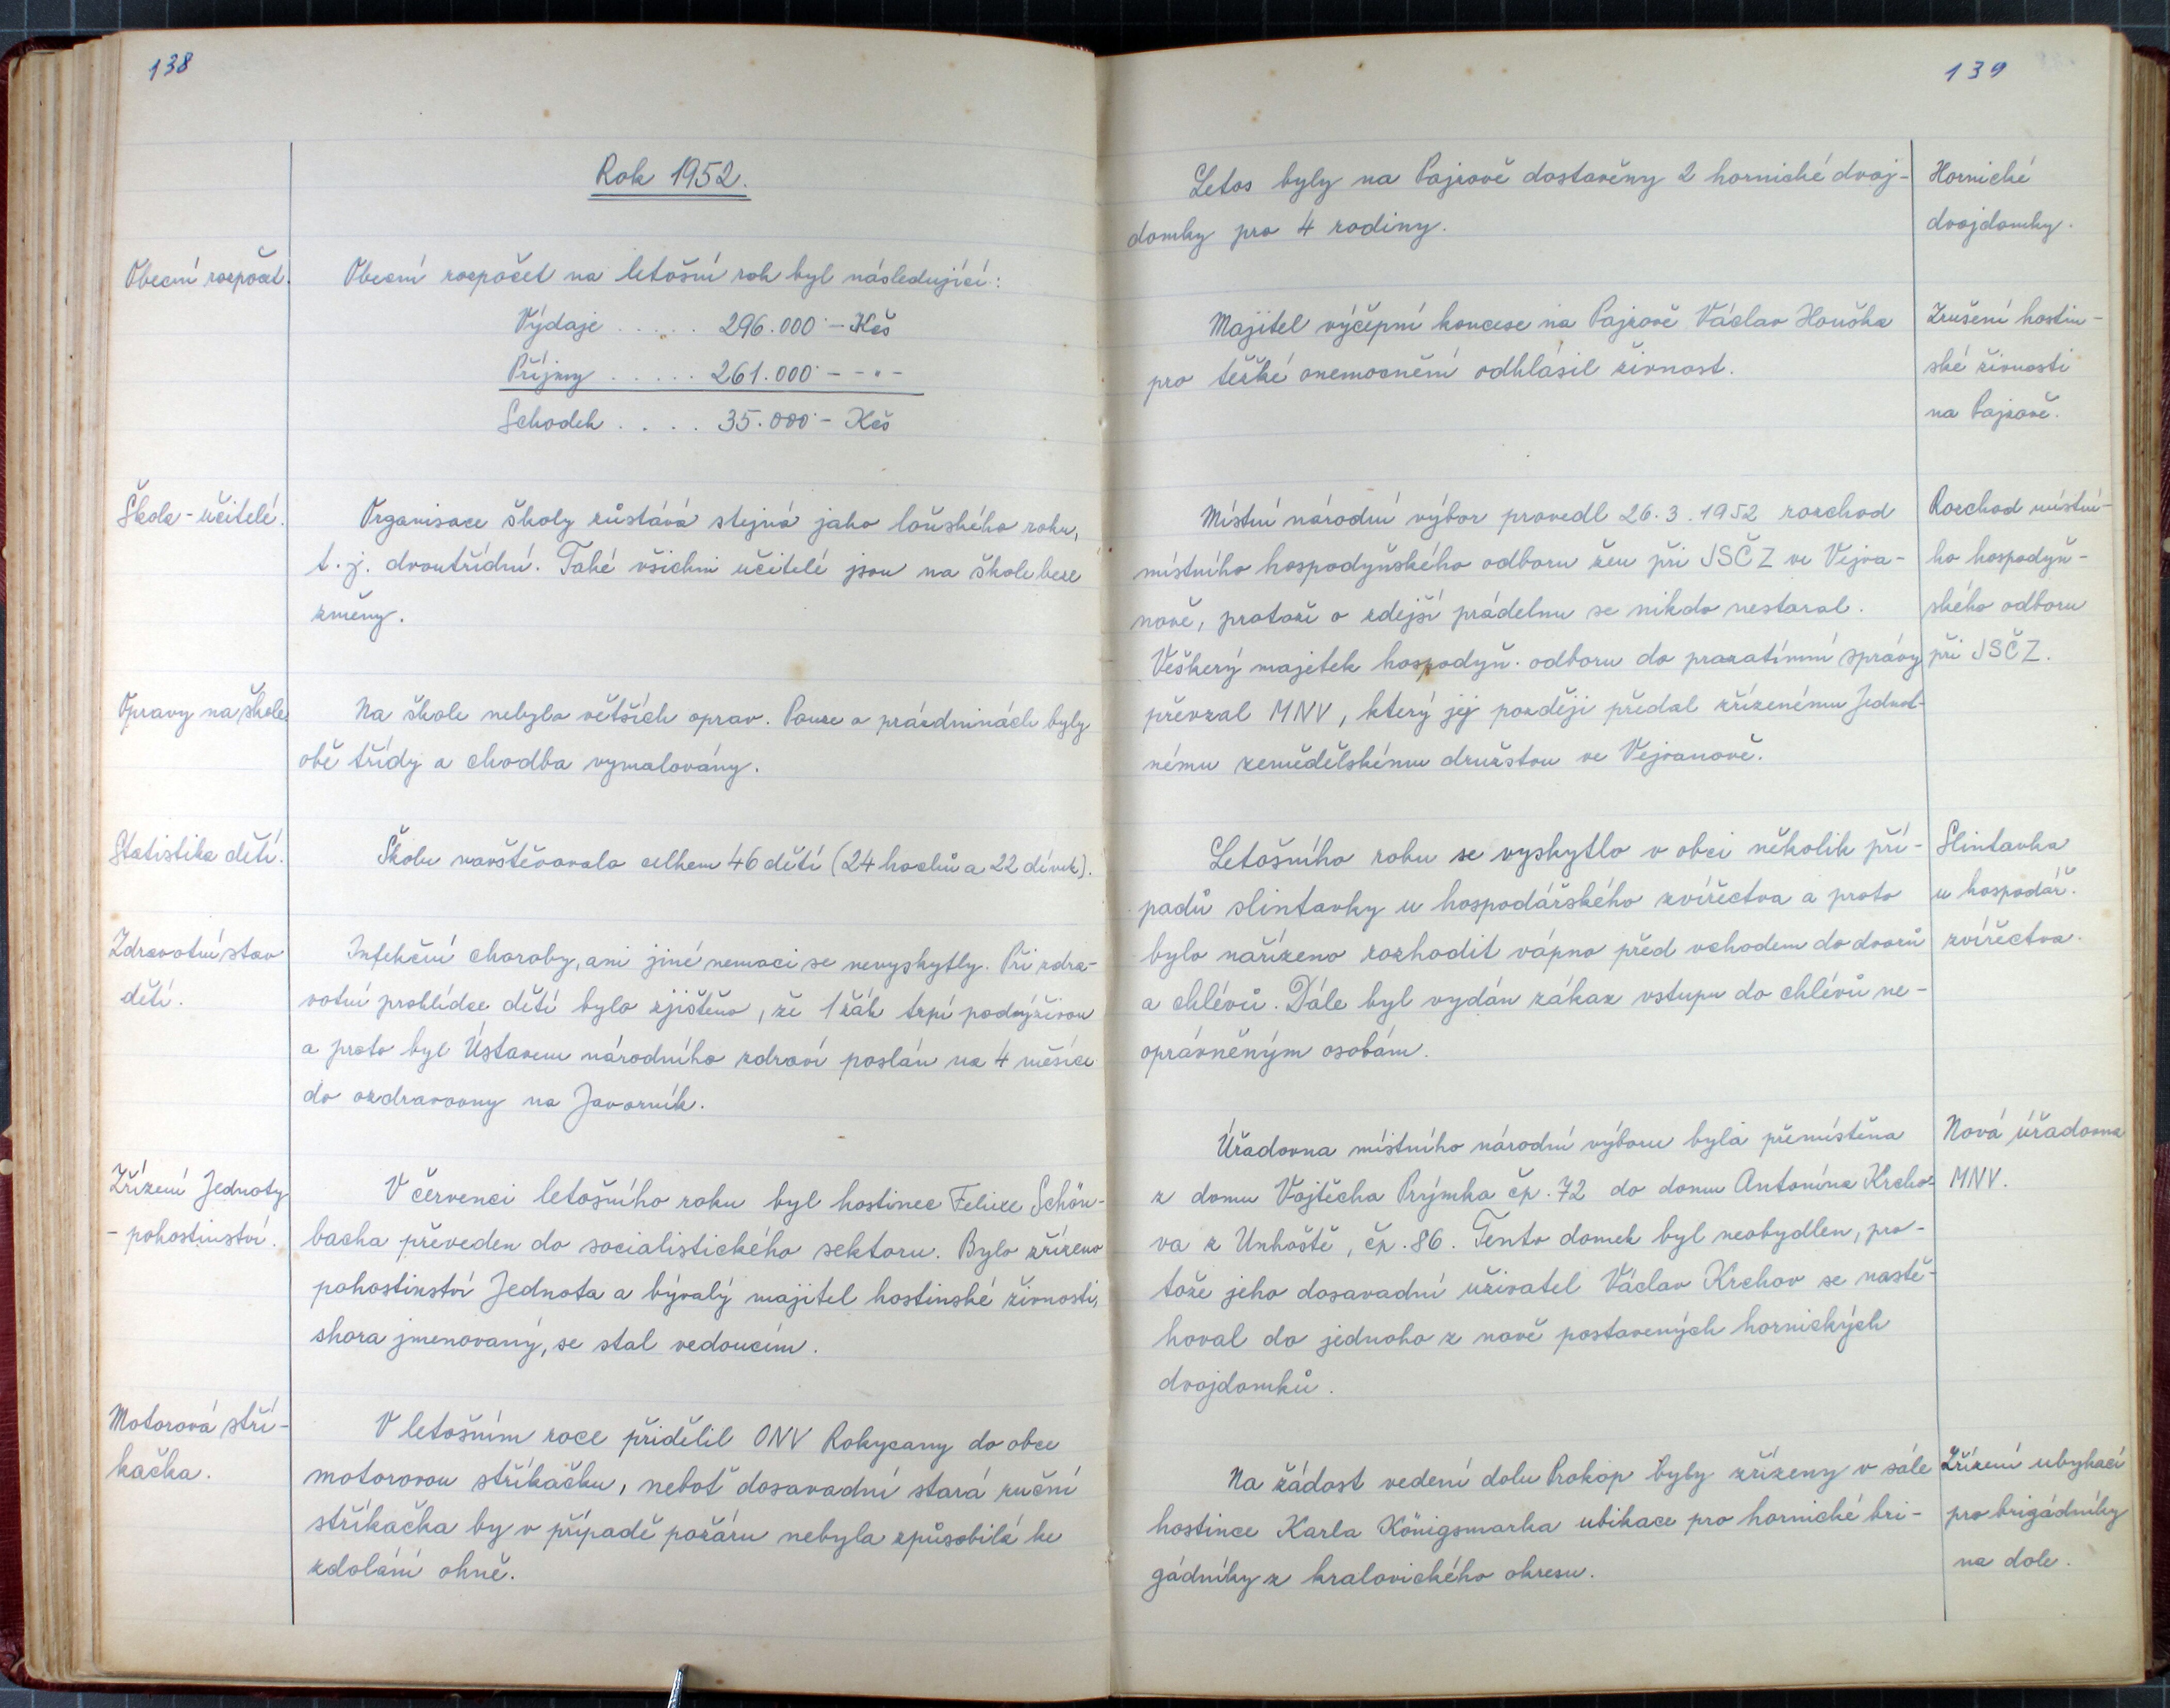 138
Rok 1952.
Obecní rozpočet.
Obecní rozpočet na letošní rok byl následující:
Výdaje ..... 296.000·– Kčs
Příjmy ..... 261.000·– –"–
Schodek .... 35.000·– Kčs
Škola - učitelé.
Organisace školy zůstává stejná jako loňského roku,
t. j. dvoutřídní. Také všichni učitelé jsou na škole beze
změny.
Opravy na škole.
Na škole nebylo větších oprav. Pouze o prázdninách byly
obě třídy a chodba vymalovány.
Statistika dětí.
Školu navštěvovalo celkem 46 dětí (24 hochů a 22 dívek).
Zdravotní stav
dětí.
Infekční choroby, ani jiné nemoci se nevyskytly. Při zdra-
votní prohlídce dětí bylo zjištěno, že 1 žák trpí podvýživou
a proto byl Ústavem národního zdraví poslán na 4 měsíce
do ozdravovny na Javorník.
Zřízení Jednoty
- pohostinství.
V červenci letošního roku byl hostinec Felixe Schön-
bacha převeden do socialistického sektoru. Bylo zřízeno
pohostinství Jednota a bývalý majitel hostinské živnosti,
shora jmenovaný, se stal vedoucím.
Motorová stří-
kačka.
V letošním roce přidělil ONV Rokycany do obce
motorovou stříkačku, neboť dosavadní stará ruční
stříkačka by v případě požáru nebyla způsobilá ke
zdolání ohně.
139
Letos byly na Pajzově dostavěny 2 hornické dvoj-
domky pro 4 rodiny.
Hornické
dvojdomky.
Majitel výčepní koncese na Pajzově Václav Houška
pro těžké onemocnění odhlásil živnost.
Zrušení hostin-
ské živnosti
na Pajzově.
Místní národní výbor provedl 26. 3. 1952 rozchod
místního hospodyňského odboru žen při JSČZ ve Vejva-
nově, protože o zdejší prádelnu se nikdo nestaral.
Veškerý majetek hospodyň. odboru do prozatímní správy
převzal MNV, který jej později předal zřízenému Jednot-
nému zemědělskému družstvu ve Vejvanově.
Rozchod místní-
ho hospodyň-
ského odboru
při JSČZ.
Letošního roku se vyskytlo v obci několik pří-
padů slintavky u hospodářského zvířectva a proto
bylo nařízeno rozhodit vápno před vchodem do dvorů
a chlévů. Dále byl vydán zákaz vstupu do chlévů ne-
oprávněným osobám.
Slintavka
u hospodář.
zvířectva.
Úřadovna místního národní výboru byla přemístěna
z domu Vojtěcha Prýmka čp. 72 do domu Antonína Krcho-
va z Unhoště, čp. 86. Tento domek byl neobydlen, pro-
tože jeho dosavadní uživatel Václav Krchov se nastě-
hoval do jednoho z nově postavených hornických
dvojdomků.
Nová úřadovna
MNV.
Na žádost vedení dolu Prokop byly zřízeny v sále
hostince Karla Königsmarka ubikace pro hornické bri-
gádníky z kralovického okresu.
Zřízení ubykací
pro brigádníky
na dole.